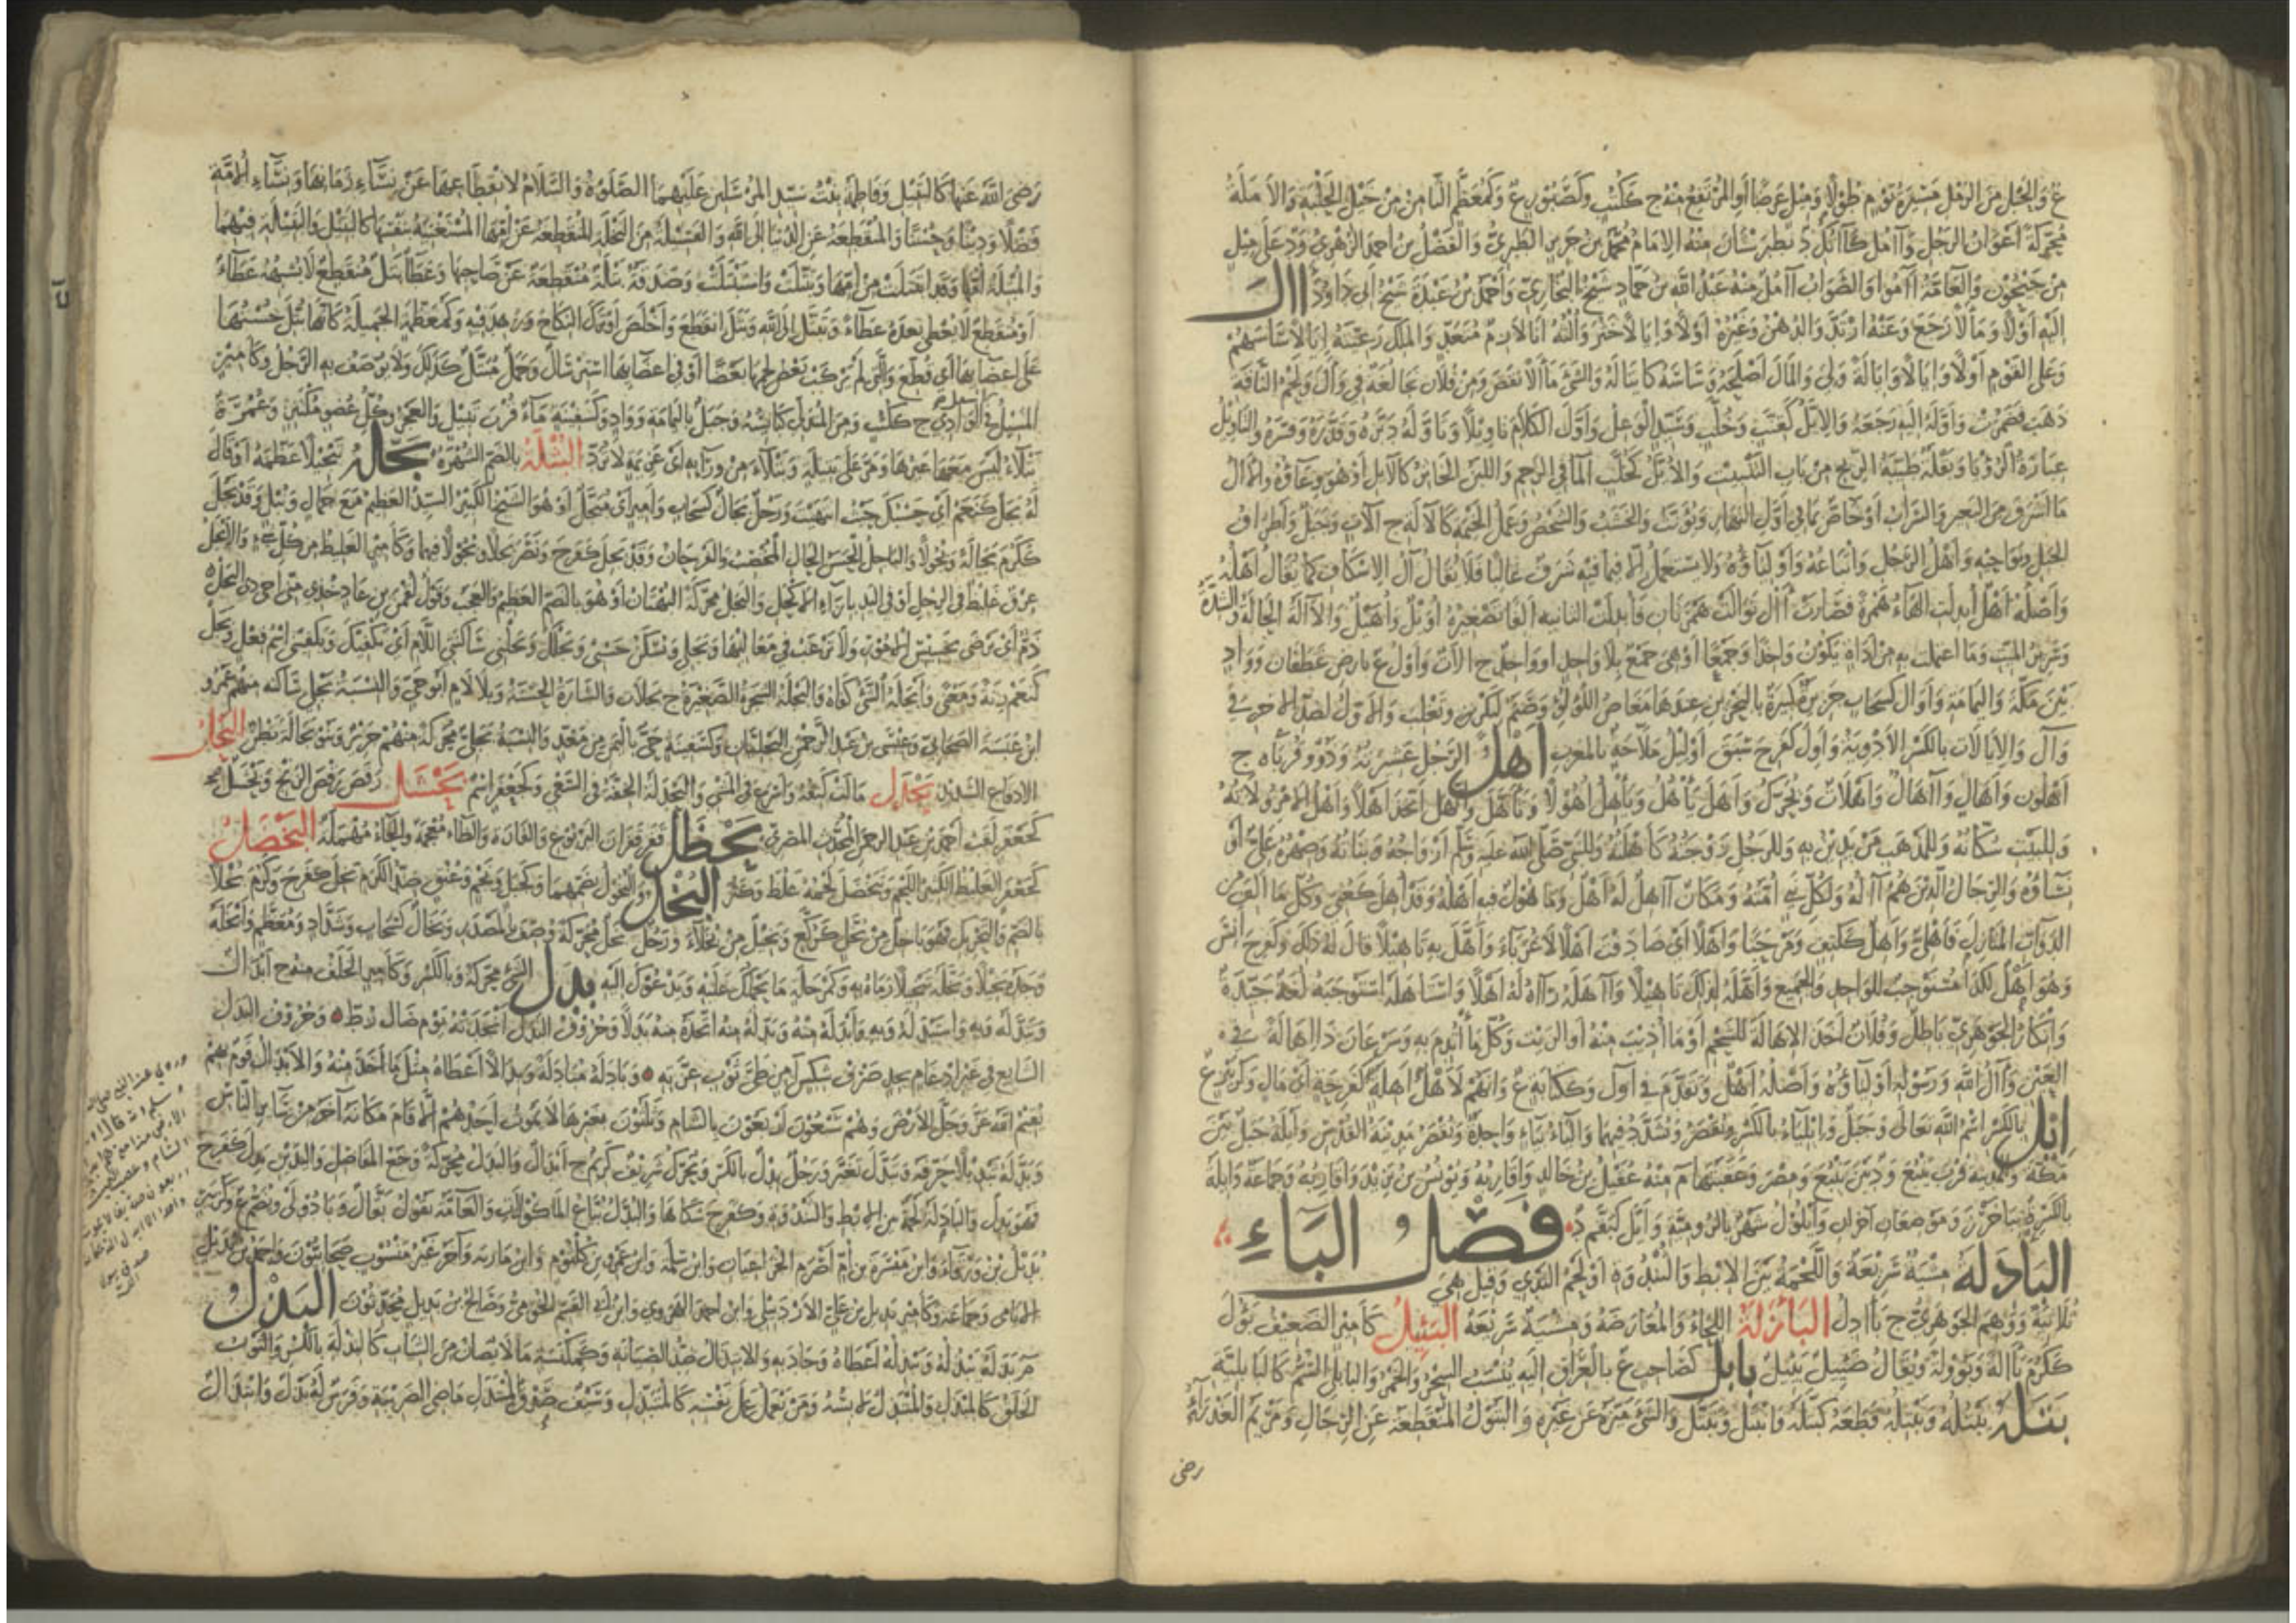 ع والحبل من الرمل مسيرة يوم طولا وميل عرضا أو المرتفع منه ج ككتب وكصبور ع وكمعظم الثامن من خيل الحلبة والأملة
محركة أعوان الرجل وآمل كآنك د بطبرستان منه الإمام محمد بن جرير الطبري والفضل بن أحمد الزهري ود على ميل
من جيحون والعامة آمو والصواب آمل منه عبد الله بن حماد شيخ البخاري وأحمد بن عبدة شيخ أبي داود آل
إليه أولا ومآلا رجع وعنه ارتد والدهن وغيره أولا وإيالا خثر وألته أنا لازم متعد والملك رعيته إيالا ساسهم
وعلى القوم أولا وإيالا وإيالة ولي والمال أصلحه وساسه كائتاله والشيء مآلا نقص ومن فلان نجا لغة في وأل ولحم الناقة
ذهب فضمرت وأوله إليه رجعه والإيل كقنب وخلب وسيد الوعل وأول الكلام تأويلا وتأوله دبره وقدره وفسره والتأويل
عبارة الرؤيا وبقلة طيبة الريح من باب التنبيت والأيل كخلب الماء في الرحم واللبن الخاثر كالآيل أو هو وعاؤه والآل
ما أشرف من البعير والسراب أو خاص بما في أول النهار ويؤنث والخشب والشخص وعمد الخيمة كالآلة ج آلات وجبل وأطراف
الجبل ونواحيه وأهل الرجل وأتباعه وأولياؤه ولا يستعمل إلا فيما فيه شرف غالبا فلا يقال آل الإسكاف كما يقال أهله
وأصله أهل أبدلت الهاء همزة فصارت أأل توالت همزتان فأبدلت الثانية ألفا تصغيره أويل وأهيل والآلة الحالة والشدة
وسرير الميت وما اعتملت به من أداة يكون واحدا وجمعا أو هي جمع بلا واحد أو واحد ج الآت وأول ع بأرض غطفان وواد
بين مكة واليمامة وأوال كسحاب جزيرة كبيرة بالبحرين عندها مغاص اللؤلؤ وصنم لبكر بن وتغلب والأول لضد الآخر في
وأل والإيالات بالكسر الأودية وأول كفرح سبق أوليل ملاحة بالمغرب أهل الرجل عشيرته وذوو قرباه ج
أهلون وأهال وآهال وأهلات ويحرك وأهل يأهل ويأهل أهولا وتأهل واتهل اتخذ أهلا وأهل الأمر ولاته
وللبيت سكانه وللمذهب من يدين به وللرجل زوجته كأهلته وللنبي صلى الله عليه وسلم أزواجه وبناته وصهره علي أو
نساؤه والرجال الذين هم آله ولكل نبي أمته ومكان آهل له أهل ومأهول فيه أهله وقد أهل كعني وكل ما ألف من
الدواب المنازل فأهلي وأهل ككتف ومرحبا وأهلا أي صادفت أهلا لا غرباء وأهل به تأهيلا قال له ذلك وكفرح أنس
وهو أهل لكذا مستوجب للواحد والجميع وأهله لذلك تأهيلا وآهله رآه له أهلا واستأهله استوجبه لغة جيدة
وإنكار الجوهري باطل وفلان أخذ الإهالة للشحم أو ما أذيب منه أو الزيت وكل ما ائتدم به وسرعان ذا إهالة في
العين وآل الله ورسوله أولياؤه وأصله أهل وتقدم في أول وككتابة ع وإنهم لأهل أهلة كفرحة أي مال وكزبير ع
إيل بالكسر اسم الله تعالى وجبل وإيلياء بالكسر ويقصر ويشدد فيهما وإلياء بياء واحدة ويقصر مدينة القدس وأيلة جبل بين
مكة والمدينة قرب ينبع ود بين ينبع ومصر وعقبتها م منه عقيل بن خالد وأقاربه ويونس بن يزيد وأقاربه وجماعة وإيلة
بالكسر ة بباخرز وموضعان آخران وأيلول شهر بالرومية وأيل كبقم د فصل الباء
البأدلة مشية سريعة واللحمة بين الإبط والثندوة أو لحم الثدي وقيل هي
ثلاثية ووهم الجوهري ج بآدل البأزلة اللحاء والمعارضة ومشية سريعة البئيل كأمير الضعيف بؤل
ككرم بآلة وبؤولة ويقال ضئيل بئيل بابل كصاحب ع بالعراق إليه ينسب السحر والخمر والبابلي السم كالبابلية
بتله يبتله ويبتله قطعه كبتله فانبتل وتبتل والشيء ميزه عن غيره والبتول المنقطعة عن الرجال ومريم العذراء
رضى
رضي الله عنها كالبتيل وفاطمة بنت سيد المرسلين عليهما الصلوة والسلام لانقطاعها عن نساء زمانها ونساء الأمة
فضلا ودينا وحسنا والمنقطعة عن الدنيا إلى الله والفسيلة من النخلة المنقطعة عن أمها المستغنية بنفسها كالبتيل والبتيلة فيهما
والمبتلة أمها وقد انبتلت من أمها وتبتلت واستبتلت وصدقة بتلة منقطعة عن صاحبها وعطاء بتل منقطع لا يشبهه عطاء
أو منقطع لا يعطى بعده عطاء وتبتل إلى الله وبتل انقطع وأخلص أو ترك النكاح وزهد فيه وكمعظمة الجميلة كأنها بتل حسنها
على أعضائها أي قطع والتي لم يركب بعض لحمها بعضا أو في أعضائها استرسال وجمل مبتل كذلك ولا يوصف به الرجل وكأمير
المسيل في أسفل الوادي ج ككتب ومن الشجر المتدلي كبائسه وجبل باليمامة وواد وكسفينة ماء قرب بتيل والعجز وكل عضو مكتنز وعمرة
بتلاء ليس معها غيرها ومر على بتيلة وبتلاء من ورائه أي عزيمة لا ترد البثلة بالضم الشهرة بجله تبجيلا عظمه أو قال
له بجل كنعم أي حسبك حيث انتهيت ورجل بجال كسحاب وأمير أي مبجل أو هو الشيخ الكبير السيد العظيم مع جمال ونبل وقد بجل
ككرم بجالة وبجولا والباجل الحسن الحال المخصب والفرحان وقد بجل كفرح ونصر بجلا وبجولا فيهما وكأمير الغليظ من كل شيء والأبجل
عرق غليظ في الرجل أو في اليد بإزاء الأكحل والبجل محركة البهتان أو هو بالضم العظيم والعجب وقول لقمن بن عاد خذي مني أخي ذي البجل
ذم أي يرضى بخسيس الأمور ولا يرغب في معاليها وبجلي وتسكن حسبي وبجلك وبجلني ساكنتي اللام أي يكفيك ويكفيني اسم فعل وبجل
كنعم زنة ومعنى وأبجله الشيء كفاه والبجلة الشجرة الصغيرة ج بجلات والشارة الحسنة وبلا لام أبو حي والنسبة بجلي ساكنة منهم عمرو
ابن عنبسة الصحابي وعيسى بن عبد الرحمن البجليان وكسفينة حي باليمن من معد والنسبة بجلي محركة منهم جرير وبنو بجالة بطن البحل
الإدقاع الشديد بحدل مالت كتفه وأسرع في المشي والبحدلة الخفة في السعي وكجعفر اسم بحشل رقص رقص الزنج وبحشل
كجعفر لقب أحمد بن عبد الرحمن المحدث المصري بحظل قفز قفزان اليربوع والفأرة والظاء معجمة والحاء مهملة البخضل
كجعفر الغليظ الكثير اللحم وتبخضل لحمه غلظ وكثر البخل والبخول بضمهما وكجبل ونجم وعنق ضد الكرم بخل كفرح وكرم بخلا
بالضم والتحريك فهو باخل من بخل كركع وبخيل من بخلاء ورجل بخل محركة وصف بالمصدر وبخال كسحاب وشداد ومعظم وأبخله
وجده بخيلا وبخله تبخيلا رماه به وكمرحلة ما يحملك عليه ويدعوك إليه بدل الشيء محركة وبالكسر وكأمير الخلف منه ج أبدال
وتبدله وبه واستبدله وبه وأبدله منه وبدله منه اتخذه منه بدلا وحروف البدل أنجدته يوم صال زط وحروف البدل
الشائع في غير إدغام بجد صرف شكس آمن طي ثوب عزته وبادله مبادلة وبدالا أعطاه مثل ما أخذ منه والأبدال قوم بهم
يقيم الله عز وجل الأرض وهم سبعون أربعون بالشام وثلثون بغيرها لا يموت أحدهم إلا قام مكانه آخر من سائر الناس
وبدله تبديلا حرفه وتبدل تغير ورجل بدل بالكسر ويحرك شريف كريم ج أبدال والبدل محركة وجع المفاصل واليدين بدل كفرح
فهو بدل والبأدلة لحمة بين الإبط والثندوة وكفرح شكاها والبدال بياع المأكولات والعامة تقول بقال وبادولى ويضم ع وكزبير
بديل بن ورقاء وابن ميسرة بن أم أصرم الخزاعيان وابن سلمة وابن عمرو بن كلثوم وابن مارية وآخر غير منسوب صحابيون وأحمد بن بديل
اليامي وجماعة وكأمير بديل بن علي الأردبيلي وابن أحمد الهروي وابن أبي القسم الخويي وصالح بن بديل محدثون البذل
م بذله يبذله ويبذله أعطاه وجاد به والابتذال ضد الصيانة وكمكنسة ما لا يصان من الثياب كالبذلة بالكسر والثوب
الخلق كالمبذل والمتبذل لابسه ومن يعمل عمل نفسه كالمبتذل وسيف صدق المبتذل ماضي الضريبة وفرس له بذل وابتذال